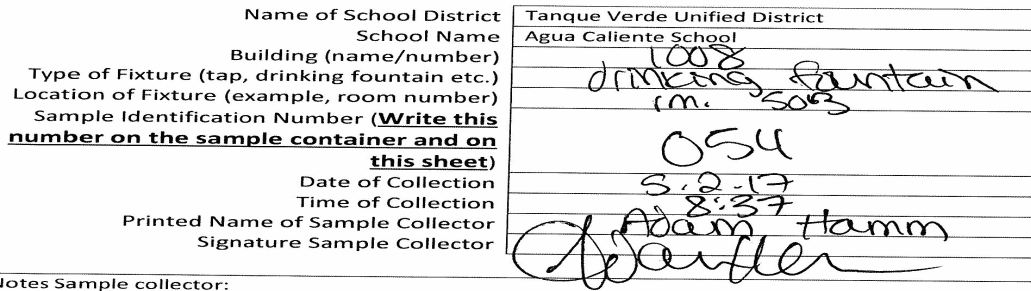 Name of School District Tanque Verde Unified District
School Name Agua Caliente School
Building (name/number) 1008
Type of Fixture (tap, drinking fountain etc.) drinking fountain
Location of Fixture (example, room number) rm.
Sample Identification Number (Write this
number on the sample container and on
this sheet) 054
Date of Collection 5.2.17
Time of Collection 8:37
Printed Name of Sample Collector Adam Hamm
Signature Sample Collector
Notes Sample collector: